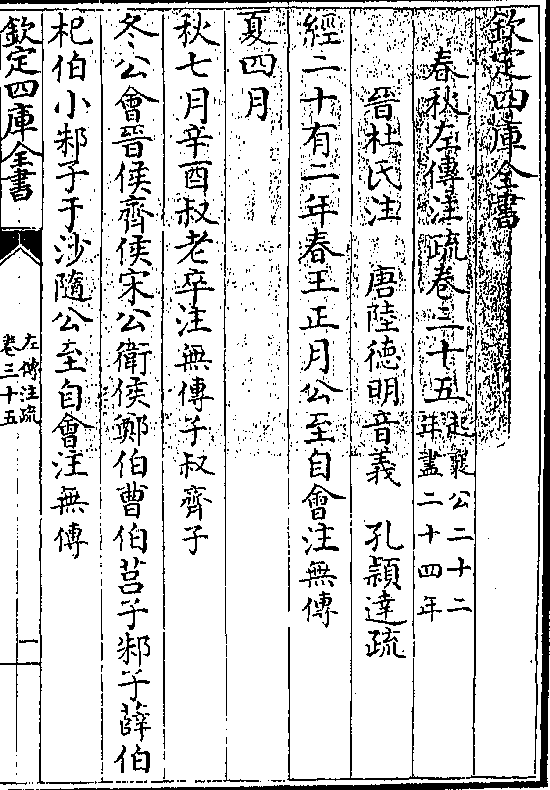 欽定四庫全書
春秋左傳注疏卷三十五起襄公二十二年盡二十四年
晉杜氏注　唐陸德明音義　孔穎達疏
經二十有二年春王正月公至自會注無傳
夏四月
秋七月辛酉叔老卒注無傳子叔齊子
冬公會晉侯齊侯宋公衛侯鄭伯曹伯莒子邾子薛伯
杞伯小邾子于沙隨公至自會注無傳
欽定四庫全書
左傳注疏
卷三十五
一